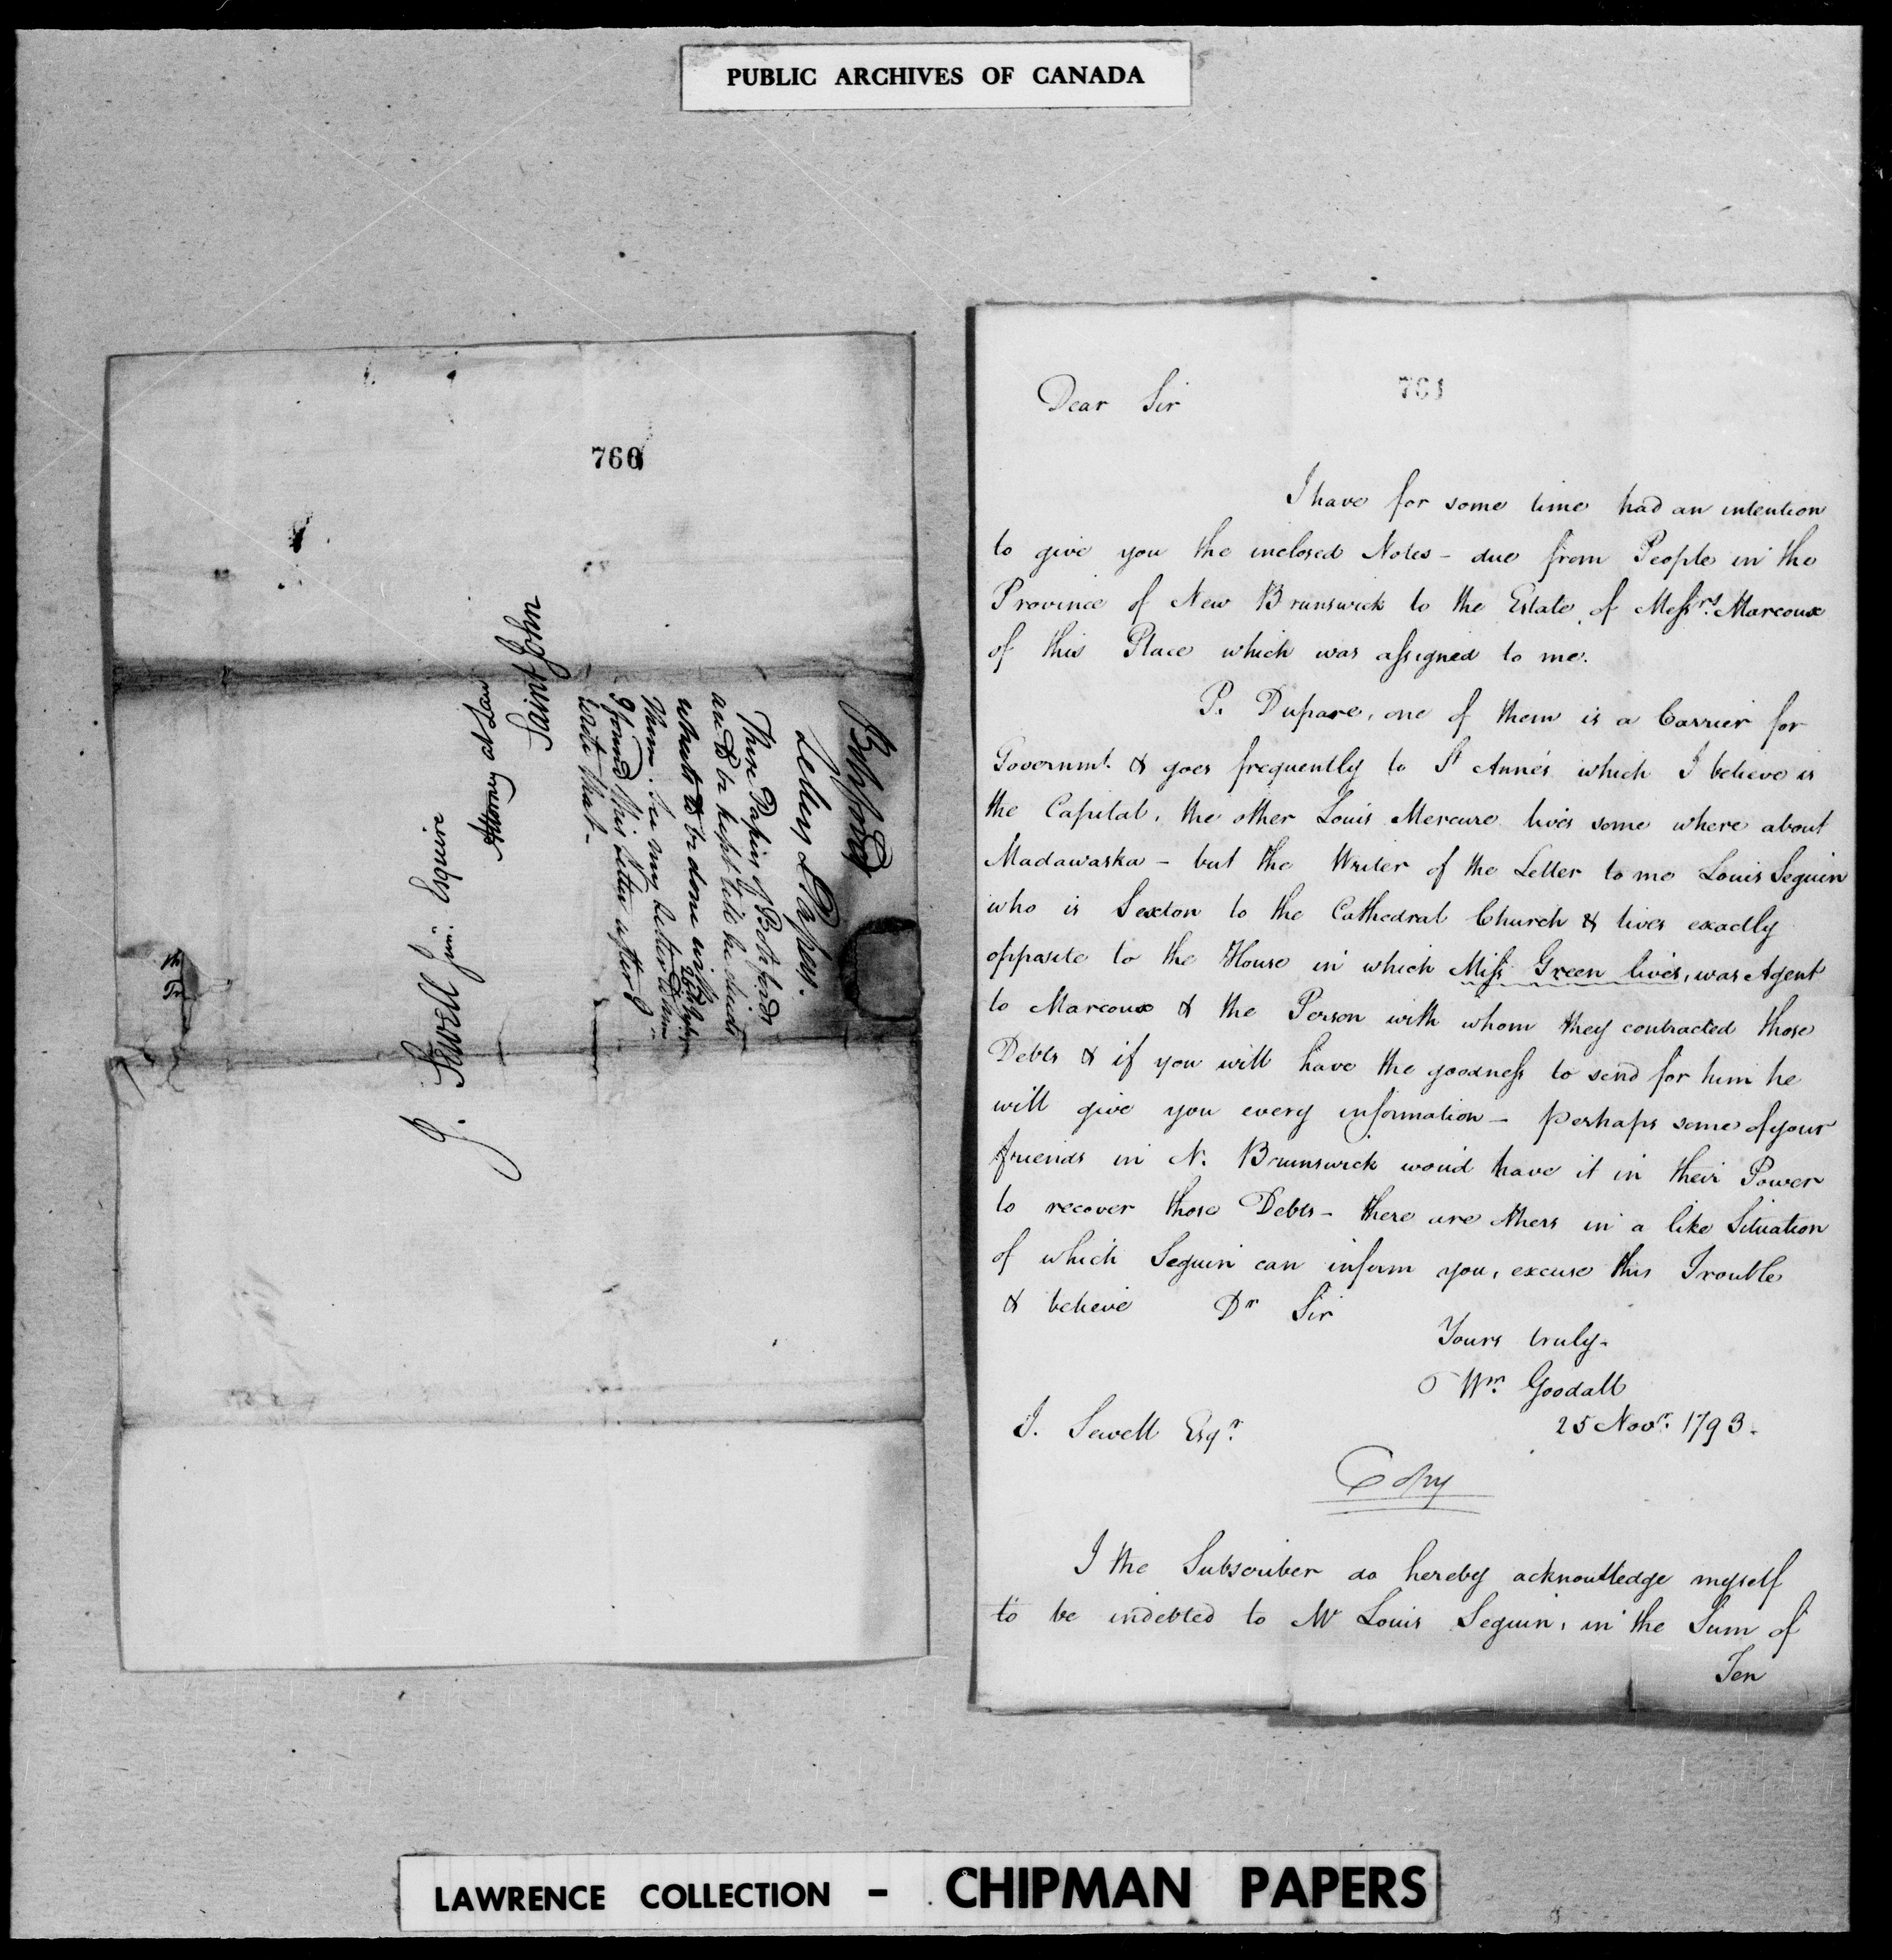 PUBLIC ARCHIVES OF CANADA
760
J. Sewell Junr. Esquire
Attorney at Law
Saint John
Botsford
Letter & Papers.
These Papers of Botsfords
are to be kept till he directs
what is to be done with
them. See my Letter to him
I found this Letter after I
wrote that—
761
Dear Sir
I have for some time had an intention
to give you the inclosed Notes - due from People in the
Province of New Brunswick to the Estate of Messrs. Marcoux
of this Place which was assigned to me.
P. Dupare, one of them is a Carrier for
Governmt. & goes frequently to St Anne's which I believe is
the Capital, the other Louis Mercure lives some where about
Madawaska - but the Writer of the Letter to me Louis Seguin
who is Sexton to the Cathedral Church & lives exactly
opposite to the House in which Miss Green lives, was Agent
to Marcoux & the Person with whom they contracted those
Debts & if you will have the goodness to send for him he
will give you every information - perhaps some of your
friends in N. Brunswick would have it in their Power
to recover those Debts - there are others in a like Situation
of which Seguin can inform you, excuse this Trouble
& believe Dr Sir
Yours truly-
Wm. Goodall
25 Novr. 1793.
J. Sewell Esqr.
Copy
I the Subscriber do hereby acknowlledge myself
to be indebted to Mr Louis Seguin, in the Sum of
Ten
LAWRENCE COLLECTION - CHIPMAN PAPERS